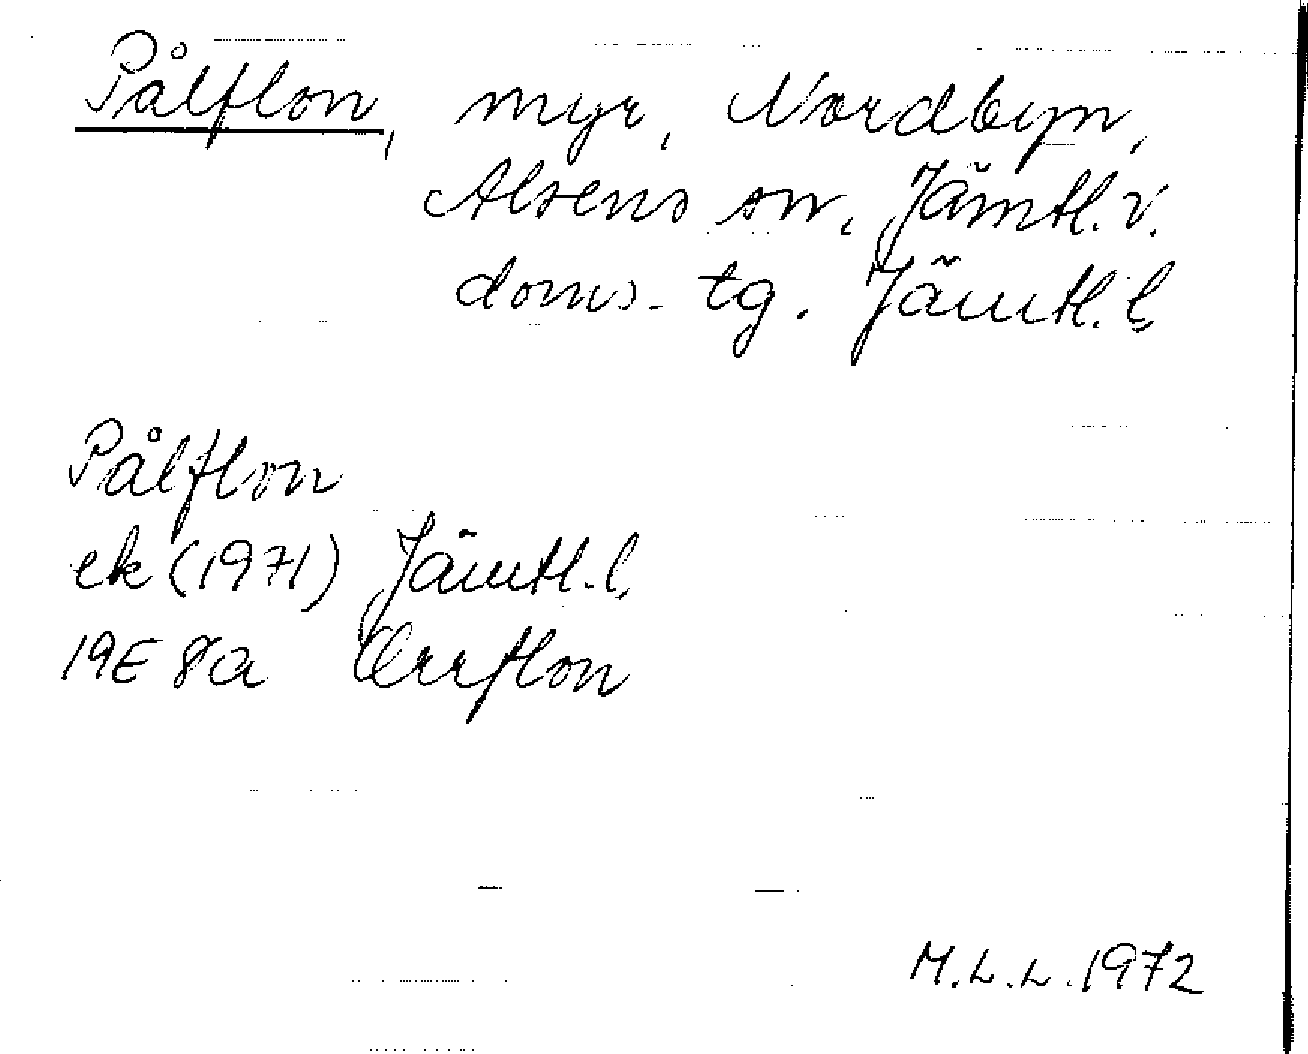 Pålflon, myr, Nordbyn,
Alsens sn, Jämtl. v.
doms. tg. Jämtl. l.
Pålflon
ek (1971) Jämtl. l.
19E 8a Orrflon
M.L.L. 1972